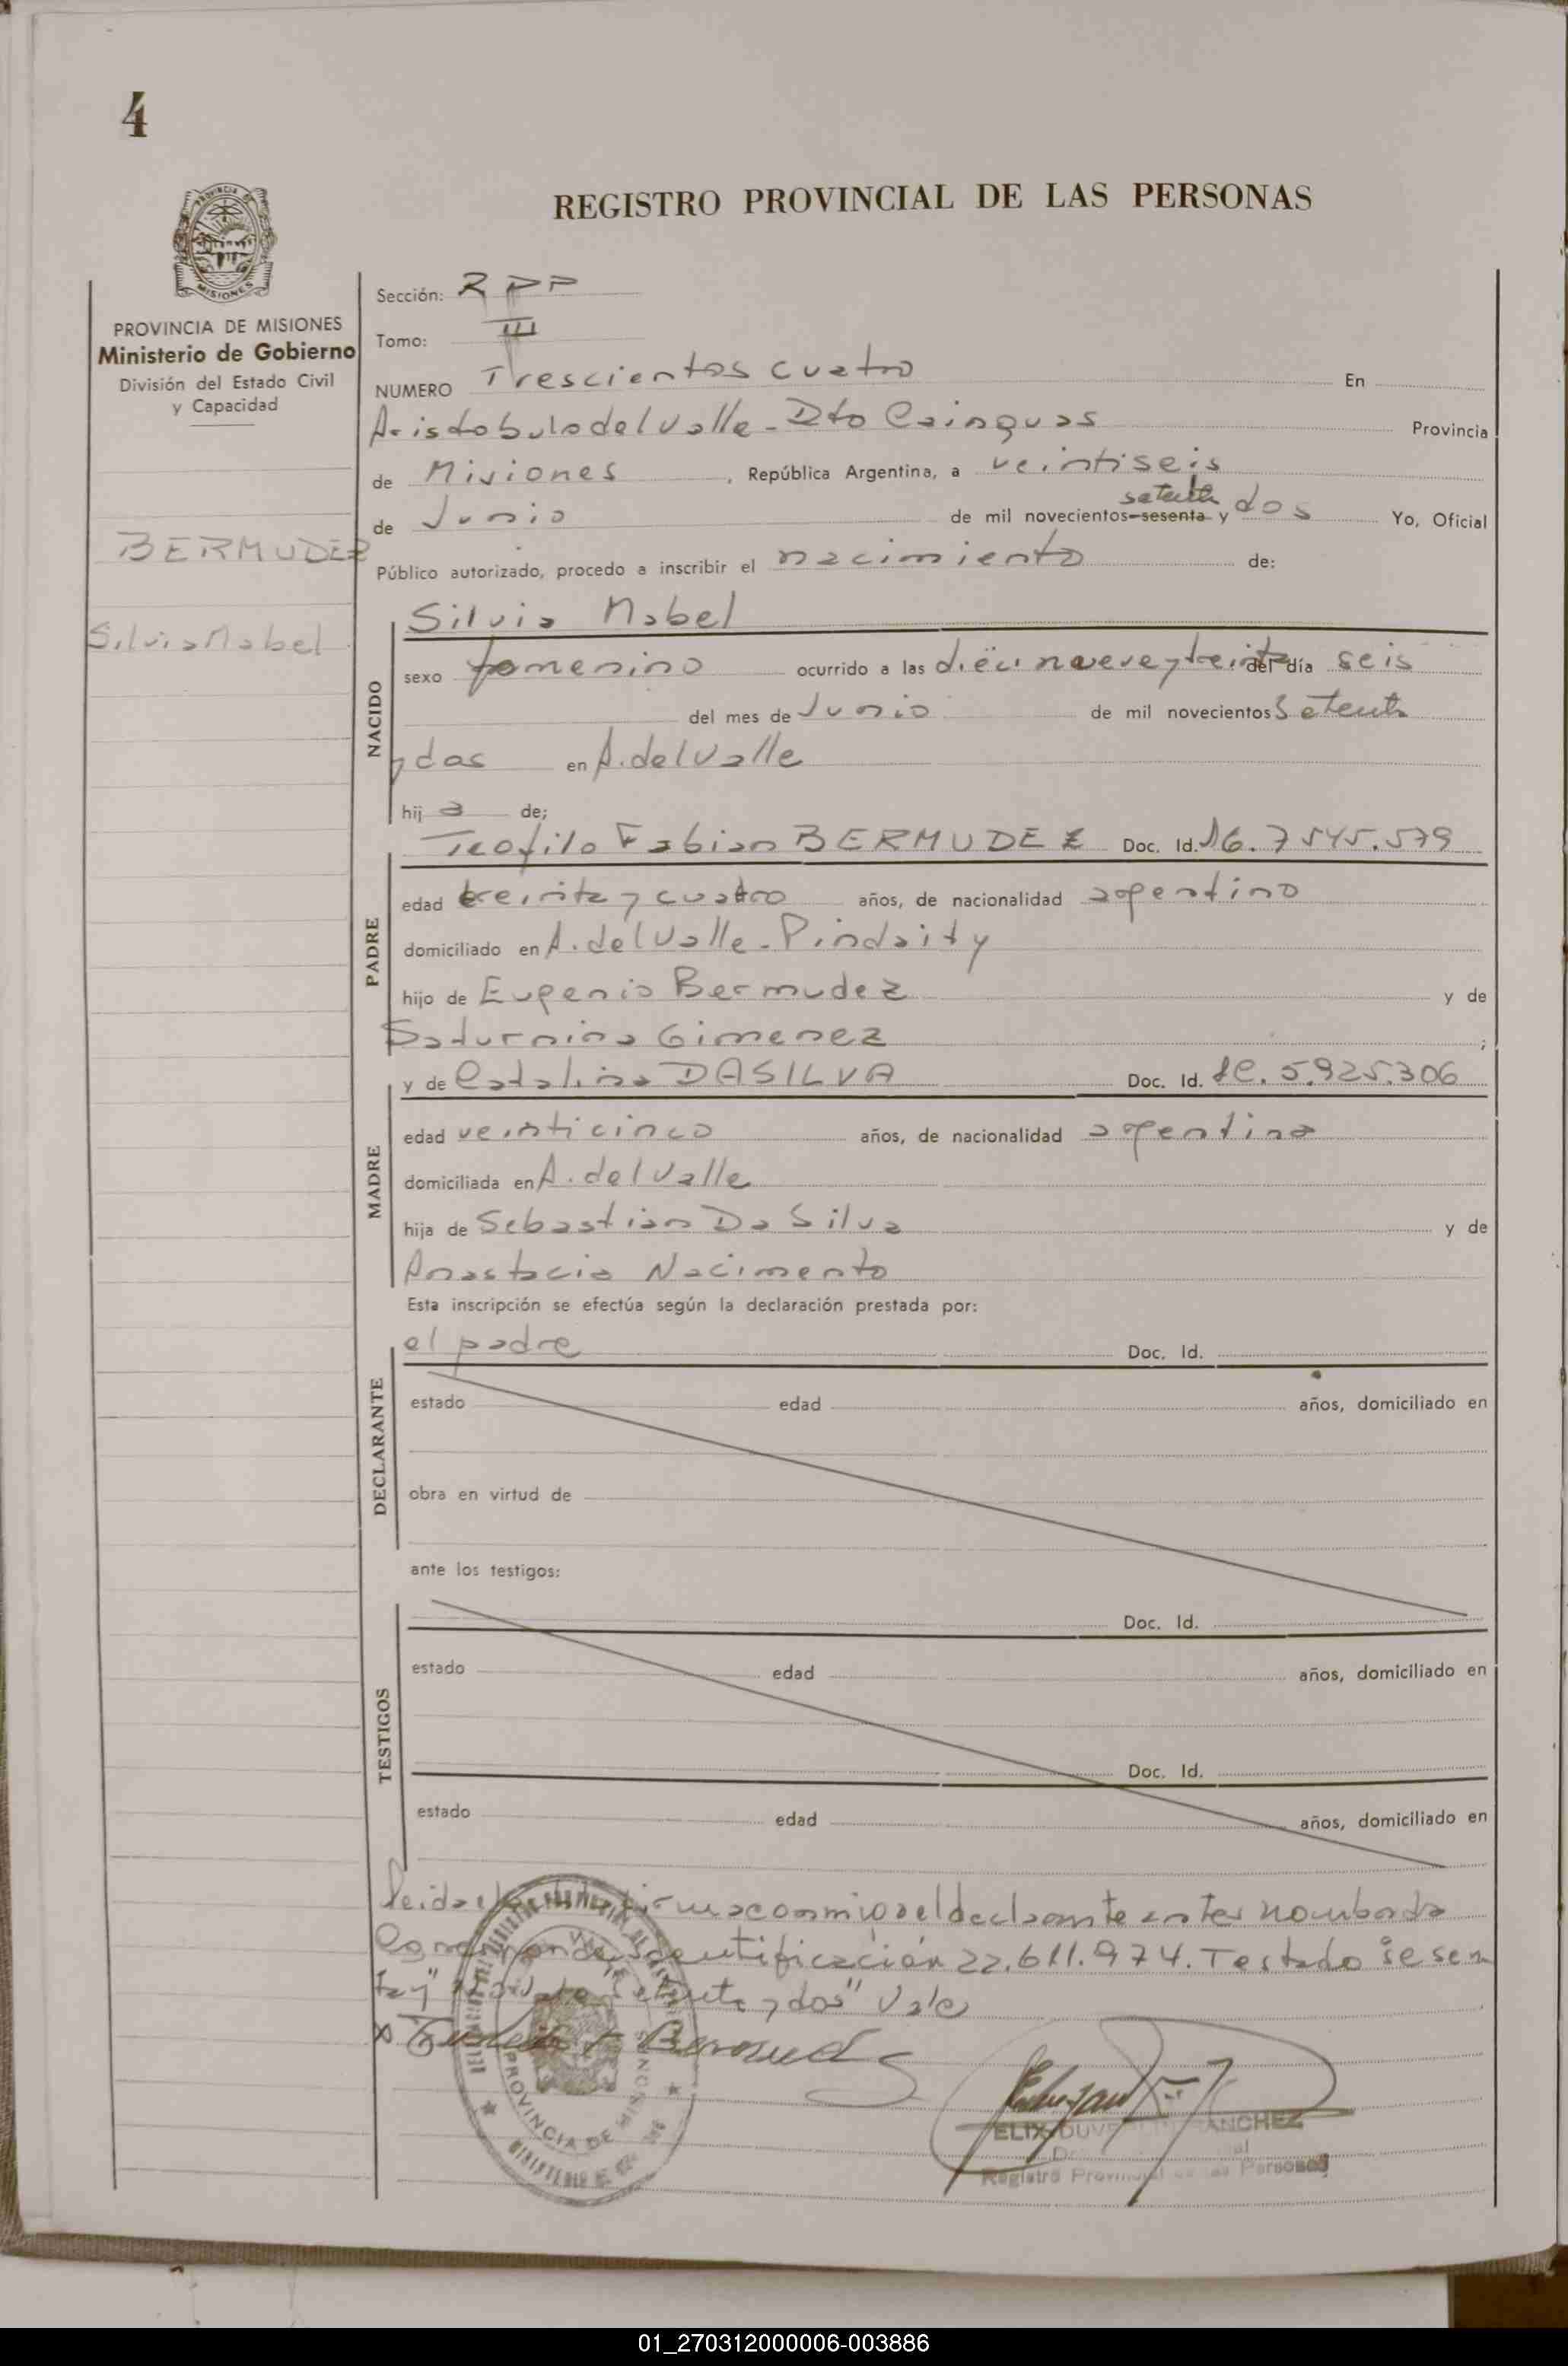 4
REGISTRO PROVINCIAL DE LAS PERSONAS
MISIONES
PROVINCIA DE MISIONES
Ministerio de Gobierno
División del Estado Civil
y Capacidad
BERMUDEZ
Silvia Mabel
Sección: R P P
Tomo: III
NUMERO Trescientos cuatro En
Aristobulo del Valle - Dto Cainguas Provincia
de Misiones, República Argentina, a veintiseis
de Junio de mil novecientos sesenta y setenta dos Yo, Oficial
Público autorizado, procedo a inscribir el nacimiento de:
NACIDO
Silvia Mabel
sexo femenino ocurrido a las diecinueve y treinta del día seis
del mes de Junio de mil novecientos Setenta
y dos en A. del Valle
hij a de;
PADRE
Teofilo Fabian BERMUDEZ Doc. Id. 7.545.579
edad treinta y cuatro años, de nacionalidad argentino
domiciliado en A. del Valle - Pindaity
hijo de Eugenio Bermudez y de
Saturnina Gimenez ;
MADRE
y de Catalina DASILVA Doc. Id. 5.925.306
edad veinticinco años, de nacionalidad argentina
domiciliada en A. del Valle
hija de Sebastian Da Silva y de
Anastacia Nacimento
Esta inscripción se efectúa según la declaración prestada por:
DECLARANTE
el padre Doc. Id.
estado edad años, domiciliado en
obra en virtud de
ante los testigos:
TESTIGOS
Doc. Id.
estado edad años, domiciliado en
Doc. Id.
estado edad años, domiciliado en
Leida el conmigo el declarante antes nombrado
identificación 22.611.974. Testado "sesen
ta y" setenta y dos" Vale
Bermudez
PROVINCIA DE MISIONES
SANCHEZ
Registro Provincial de las Personas
01_270312000006-003886